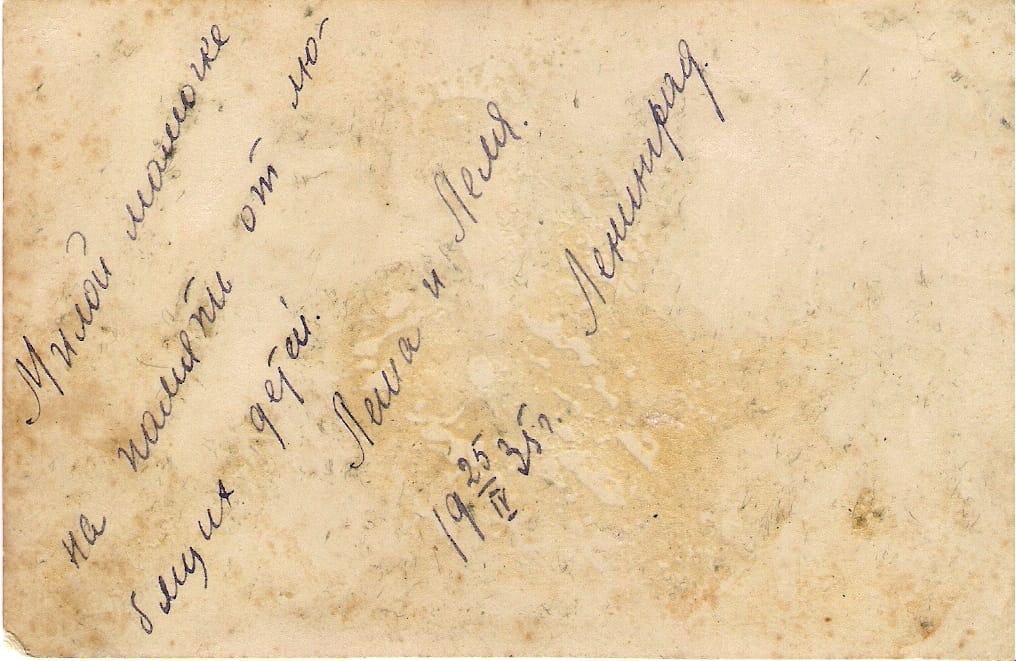 Милой мамочке
на память от лю-
бящих детей.
Леша и Леля.
19 25/IV 35 г.
Ленинград.